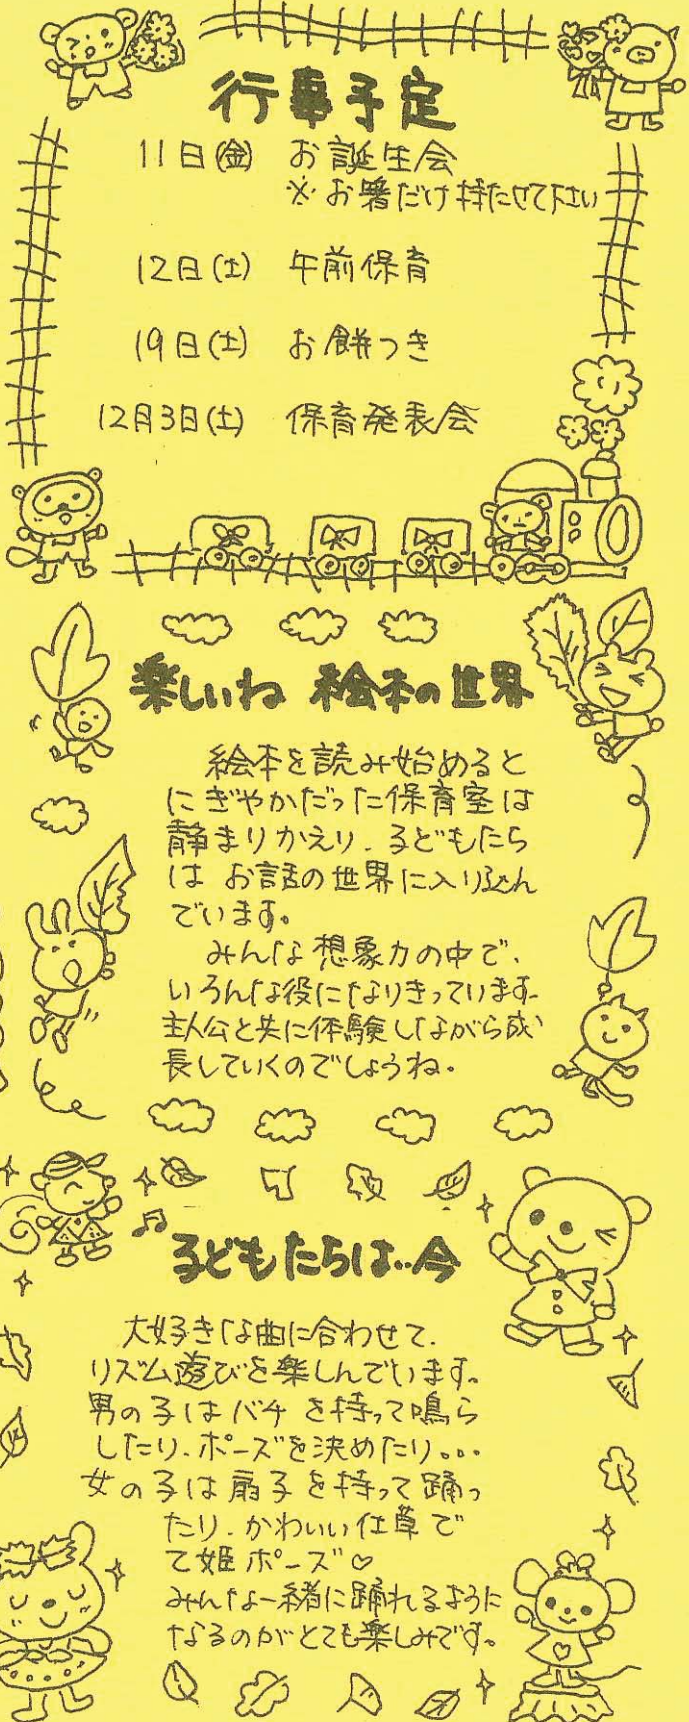 行事予定
11日(金) お誕生会
※お箸だけ持たせて下さい
12日(土) 午前保育
19日(土) お餅つき
12月3日(土) 保育発表会
楽しいね 絵本の世界
絵本を読み始めると
にぎやかだった保育室は
静まりかえり、子どもたち
は お話の世界に入り込ん
でいます。
みんな想象力の中で、
いろんな役になりきっています。
主人公と共に体験しながら成
長していくのでしょうね。
子どもたちは…今
大好きな曲に合わせて、
リズム遊びを楽しんでいます。
男の子はバチを持って鳴ら
したり、ポーズを決めたり。。。
女の子は扇子を持って踊っ
たり、かわいい仕草で
て姫ポーズ♡
みんな一緒に踊れるように
なるのがとても楽しみです。